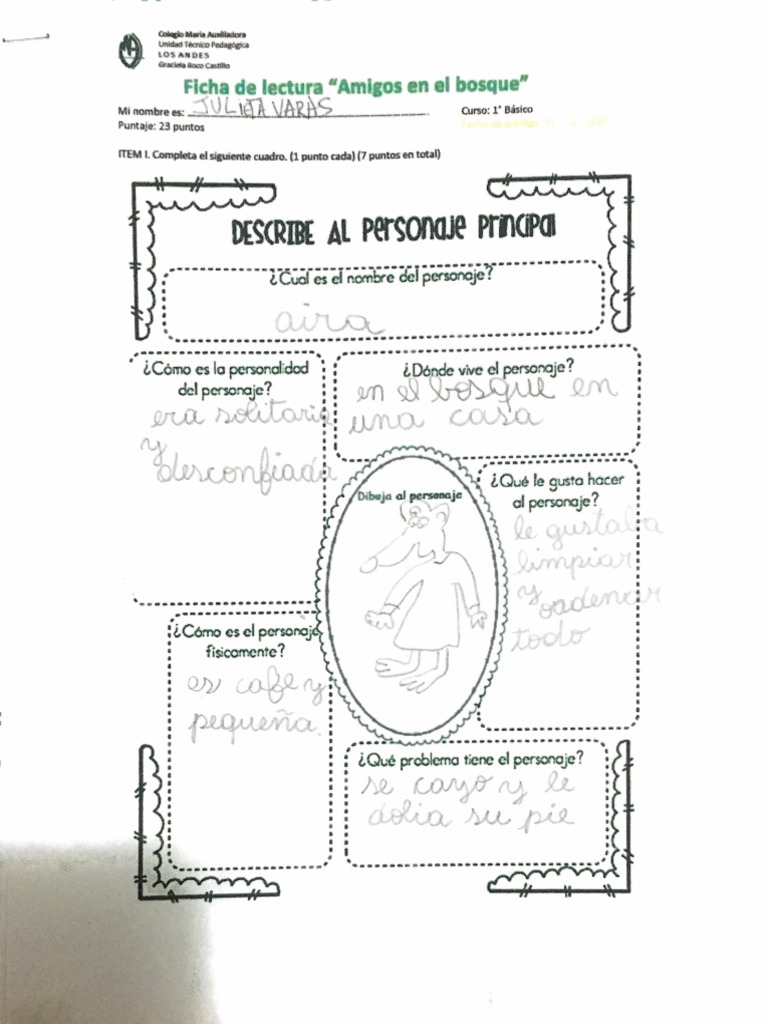 Colegio María Auxiliadora
Unidad Técnico Pedagógica
LOS ANDES
Graciela Roco Castillo
Ficha de lectura “Amigos en el bosque”
Mi nombre es: JULIETA VARAS
Curso: 1° Básico
Puntaje: 23 puntos
ITEM I. Completa el siguiente cuadro. (1 punto cada) (7 puntos en total)
DESCRIBE AL PERSONAJE PRINCIPAL
¿Cual es el nombre del personaje?
aira
¿Cómo es la personalidad
del personaje?
era solitaria
y
desconfiada
¿Dónde vive el personaje?
en el bosque en
una casa
Dibuja al personaje
¿Qué le gusta hacer
al personaje?
le gustaba
limpiar
y ordenar
todo
¿Cómo es el personaje
físicamente?
es cafe y
pequeña.
¿Qué problema tiene el personaje?
se cayo y le
dolia su pie